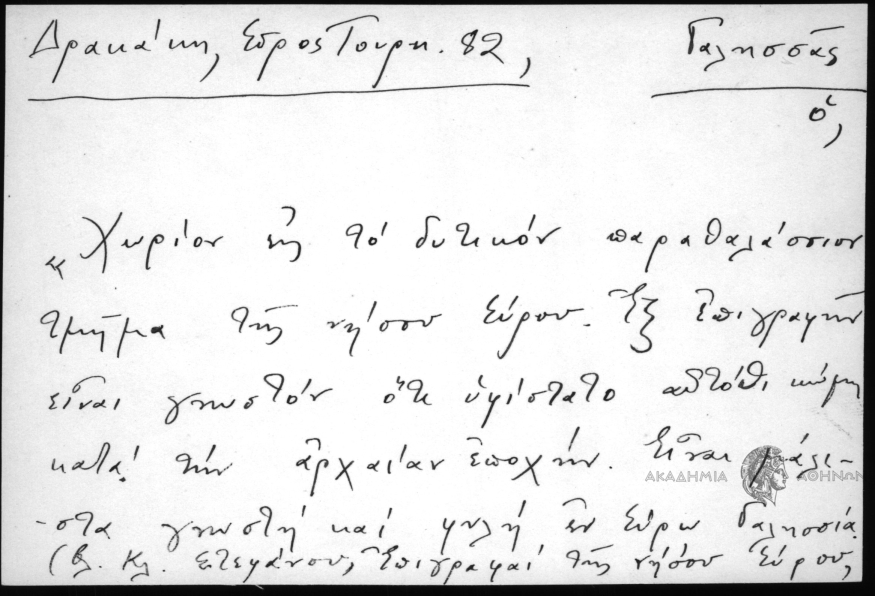 Δρακάκη, Σῦρος Τουρκ. 82, Γαλησσᾶς
ὁ,
« Χωρίον εἰς τό δυτικόν παραθαλάσσιον
τμῆμα τῆς νήσου Σύρου. Ἐξ ἐπιγραφῶν
εἶναι γνωστόν ὅτι ὑφίστατο αὐτόθι κώμη
κατά τήν ἀρχαίαν ἐποχήν. Εἶναι μάλι-
ΑΚΑΔΗΜΙΑ ΑΘΗΝΩΝ
-στα γνωστή καί φυλή ἐν Σύρῳ Γαλησσία
(βλ. Κλ. Στεφάνου, Ἐπιγραφαί τῆς νήσου Σύρου,